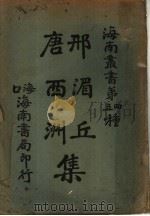 海南叢書第四五種
邢湄丘集
唐西洲
海口海南書局印行